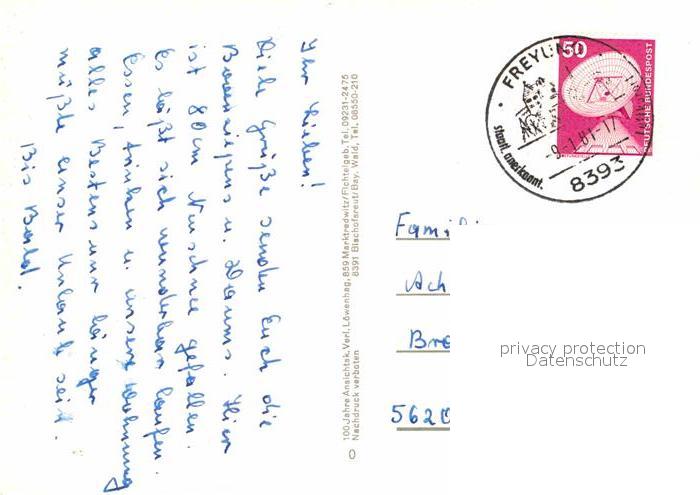 Ihr Lieben!
Viele Grüße senden Euch die
u. Hier
ist 80 cm Neuschnee gefallen.
Es läßt sich wunderbar laufen.
Essen, trinken u. unsere Wohnung
alles Bestens nur länger
müßte unser Urlaub sein.
Bis Bald.
100 Jahre Ansichtsk. Verl. Löwenhag, 859 Marktredwitz/Fichtelgeb. Tel. 09231-2475
8391 Bischofsreut/Bay. Wald, Tel. 08550-210
Nachdruck verboten
0
FREYUN
staatl. anerkannt.
-9.-1.81-17
8393
50
DEUTSCHE BUNDESPOST
Fami
Ach
Bre
562
privacy protection
Datenschutz